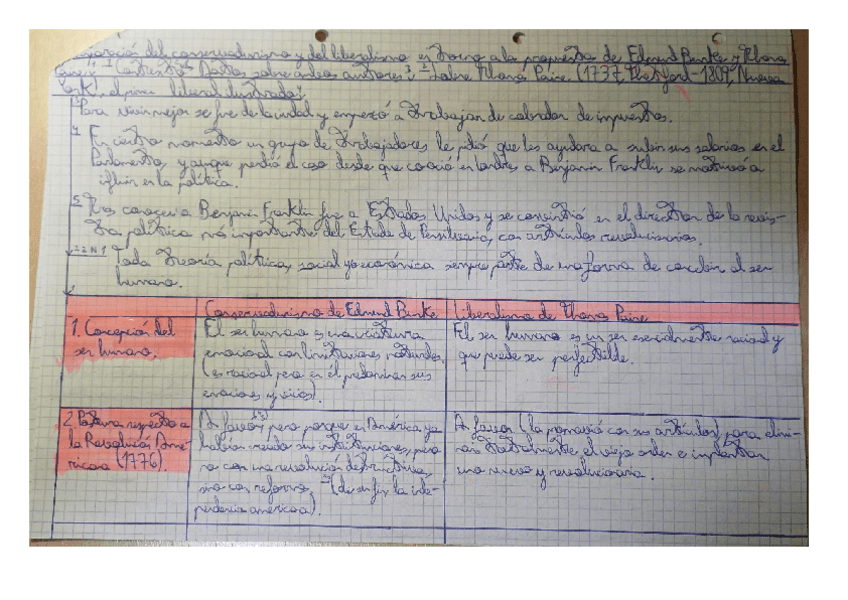 Comparación del conservadurismo y del liberalismo en torno a la propuesta de Edmund Burke y Thomas
Paine. Contexto: Datos sobre ambos autores: Sobre Thomas Paine (1737, Thetford-1809, Nueva
York), el primer liberal ilustrado:
Para vivir mejor se fue de la ciudad y empezó a trabajar de cobrador de impuestos.
En cierto momento un grupo de trabajadores le pidió que les ayudara a subir sus salarios en el
Parlamento, y aunque perdió el caso desde que conoció en Londres a Benjamin Franklin se motivó a
influir en la política.
Tras conocer a Benjamin Franklin fue a Estados Unidos y se convirtió en el director de la revis-
ta política más importante del Estado de Pensilvania, con artículos revolucionarios.
Toda teoría política, social y/o económica siempre parte de una forma de concebir al ser
humano.
Conservadurismo de Edmund Burke
Liberalismo de Thomas Paine
1. Concepción del
ser humano.
El ser humano es una criatura
emocional con limitaciones naturales.
(es racional pero en él predominan sus
emociones y vicios).
El ser humano es un ser esencialmente racional y
que puede ser perfectible.
2. Postura respecto a
la Revolución Ame-
ricana (1776).
A favor, pero porque en América ya
habían creado sus instituciones, pero
no con una revolución destructiva,
sino con reforma. (de su fin, la inde-
pendencia americana).
A favor (la promovió con sus artículos) para elimi-
nar totalmente el viejo orden e implantar
uno nuevo y revolucionario.